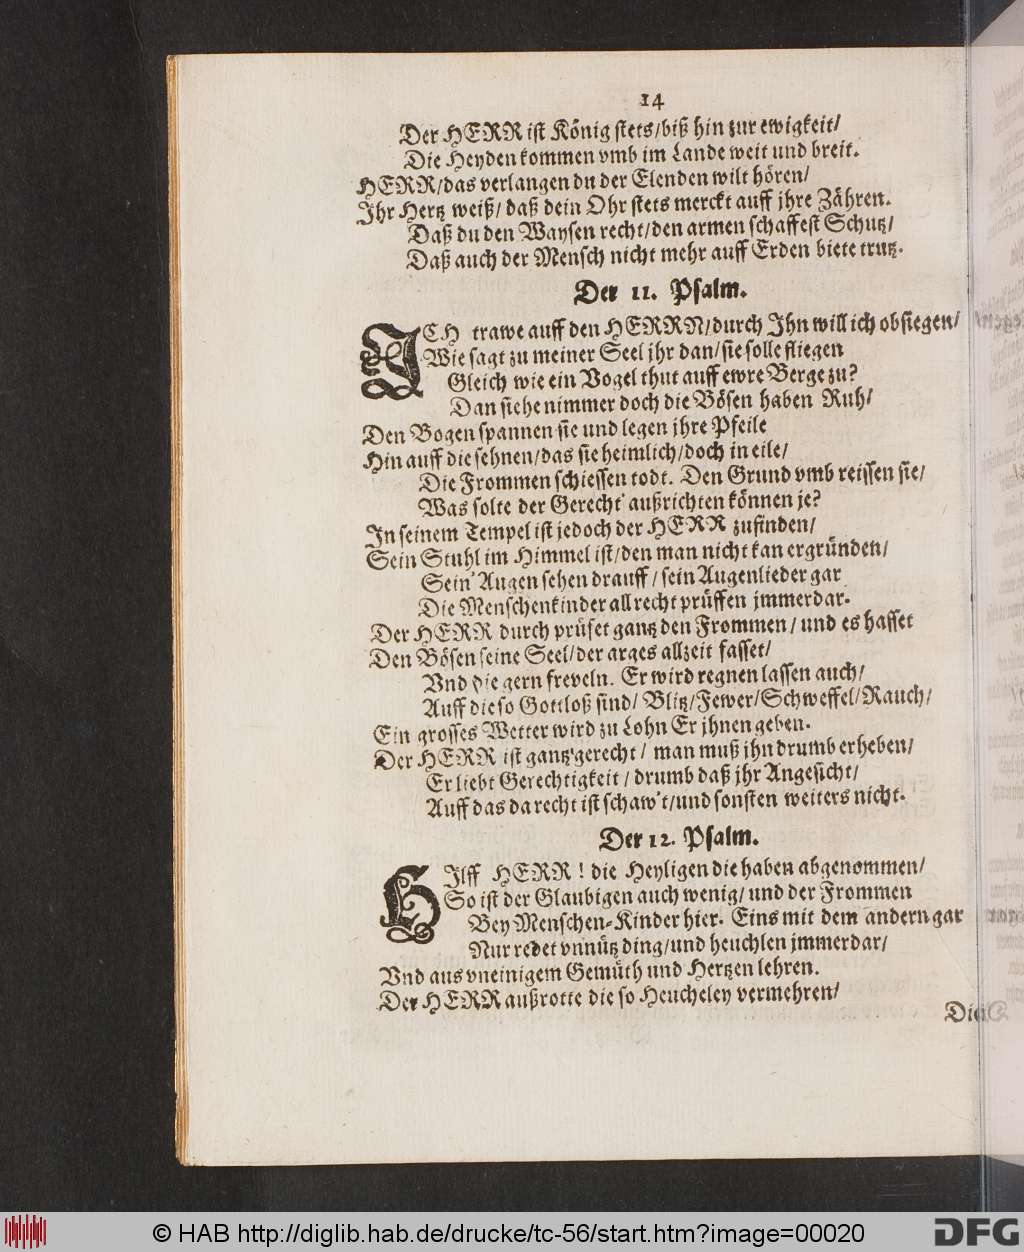 14
Der HERR ist König stets/biß hin zur ewigkeit/
Die Heyden kommen vmb im Lande weit und breit.
HERR/das verlangen du der Elenden wilt hören/
Ihr Hertz weiß/ daß dein Ohr stets merckt auff jhre Zähren.
Daß du den Waysen recht/den armen schaffest Schutz/
Daß auch der Mensch nicht mehr auff Erden biete trutz.
Der 11. Psalm.
ICH trawe auff den HERRN/durch Ihn will ich obsiegen/
Wie sagt zu meiner Seel jhr dan/sie solle fliegen
Gleich wie ein Vogel thut auff ewre Berge zu?
Dan siehe nimmer doch die Bösen haben Ruh/
Den Bogen spannen sie und legen jhre Pfeile
Hin auff die sehnen/das sie heimlich/doch in eile/
Die Frommen schiessen todt. Den Grund vmb reissen sie/
Was solte der Gerecht' außrichten können je?
In seinem Tempel ist jedoch der HERR zufinden/
Sein Stuhl im Himmel ist/den man nicht kan ergründen/
Sein' Augen sehen drauff/ sein Augenlieder gar
Die Menschenkinder all recht prüffen jmmerdar.
Der HERR durch prüfet gantz den Frommen/ und es hasset
Den Bösen seine Seel/der arges allzeit fasset/
Vnd die gern freveln. Er wird regnen lassen auch/
Auff die so Gottloß sind/ Blitz/Fewer/Schweffel/Rauch/
Ein grosses Wetter wird zu Lohn Er jhnen geben.
Der HERR ist gantz gerecht/ man muß jhn drumb erheben/
Er liebt Gerechtigkeit/ drumb daß jhr Angesicht/
Auff das da recht ist schaw't/und sonsten weiters nicht.
Der 12. Psalm.
HIlff HERR! die Heyligen die haben abgenommen/
So ist der Glaubigen auch wenig/ und der Frommen
Bey Menschen-Kinder hier. Eins mit dem andern gar
Nur redet vnnütz ding/und heuchlen jmmerdar/
Vnd aus vneinigem Gemüth und Hertzen lehren.
Der HERR außrotte die so Heucheley vermehren/
Die
© HAB http://diglib.hab.de/drucke/tc-56/start.htm?image=00020
DFG